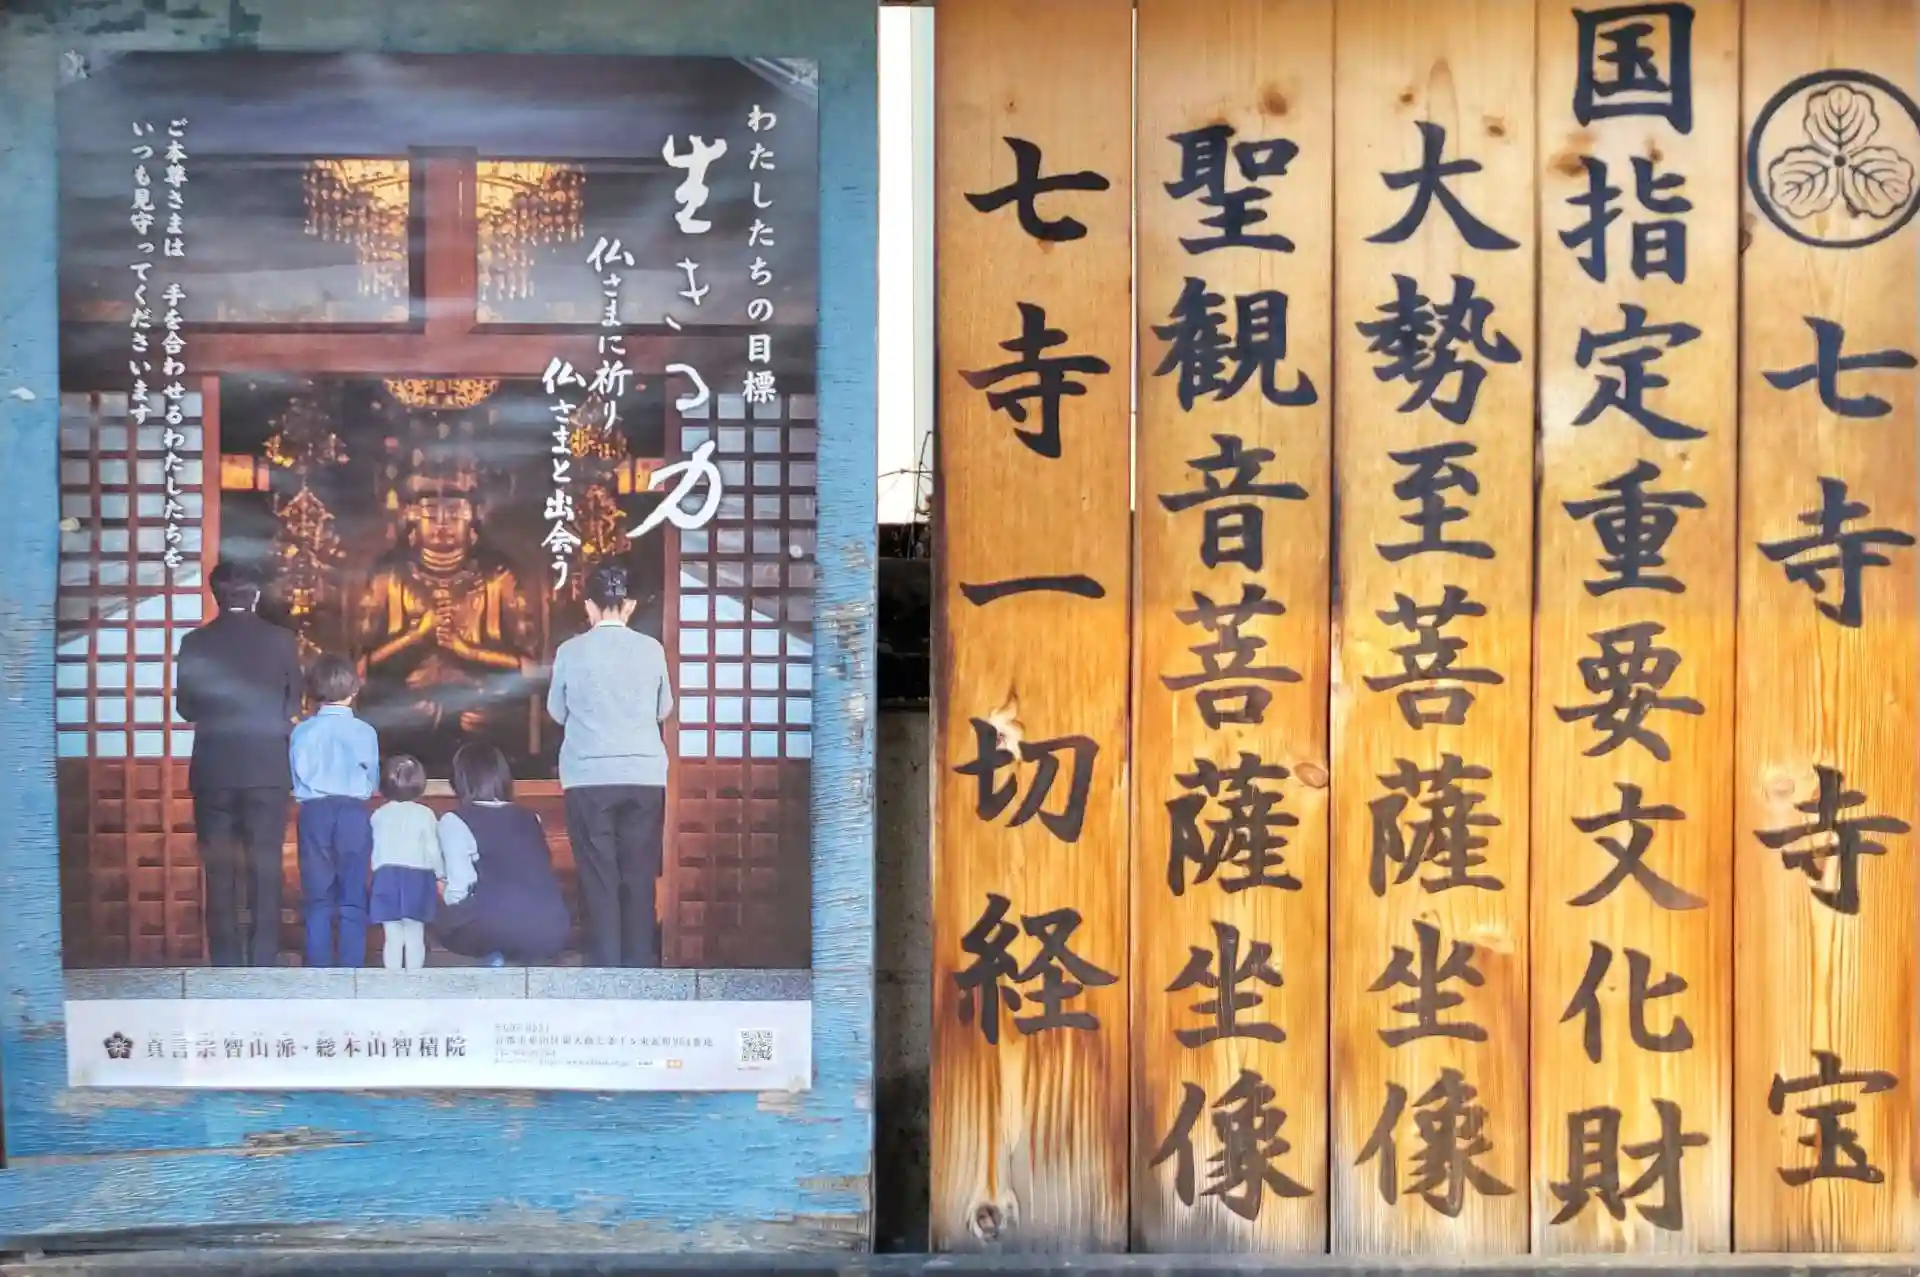 七寺寺宝
国指定重要文化財
大勢至菩薩坐像
聖観音菩薩坐像
七寺一切経
わたしたちの目標
生きる力
仏さまに祈り
仏さまと出会う
ご本尊さまは 手を合わせるわたしたちを
いつも見守ってくださいます
真言宗智山派・総本山智積院